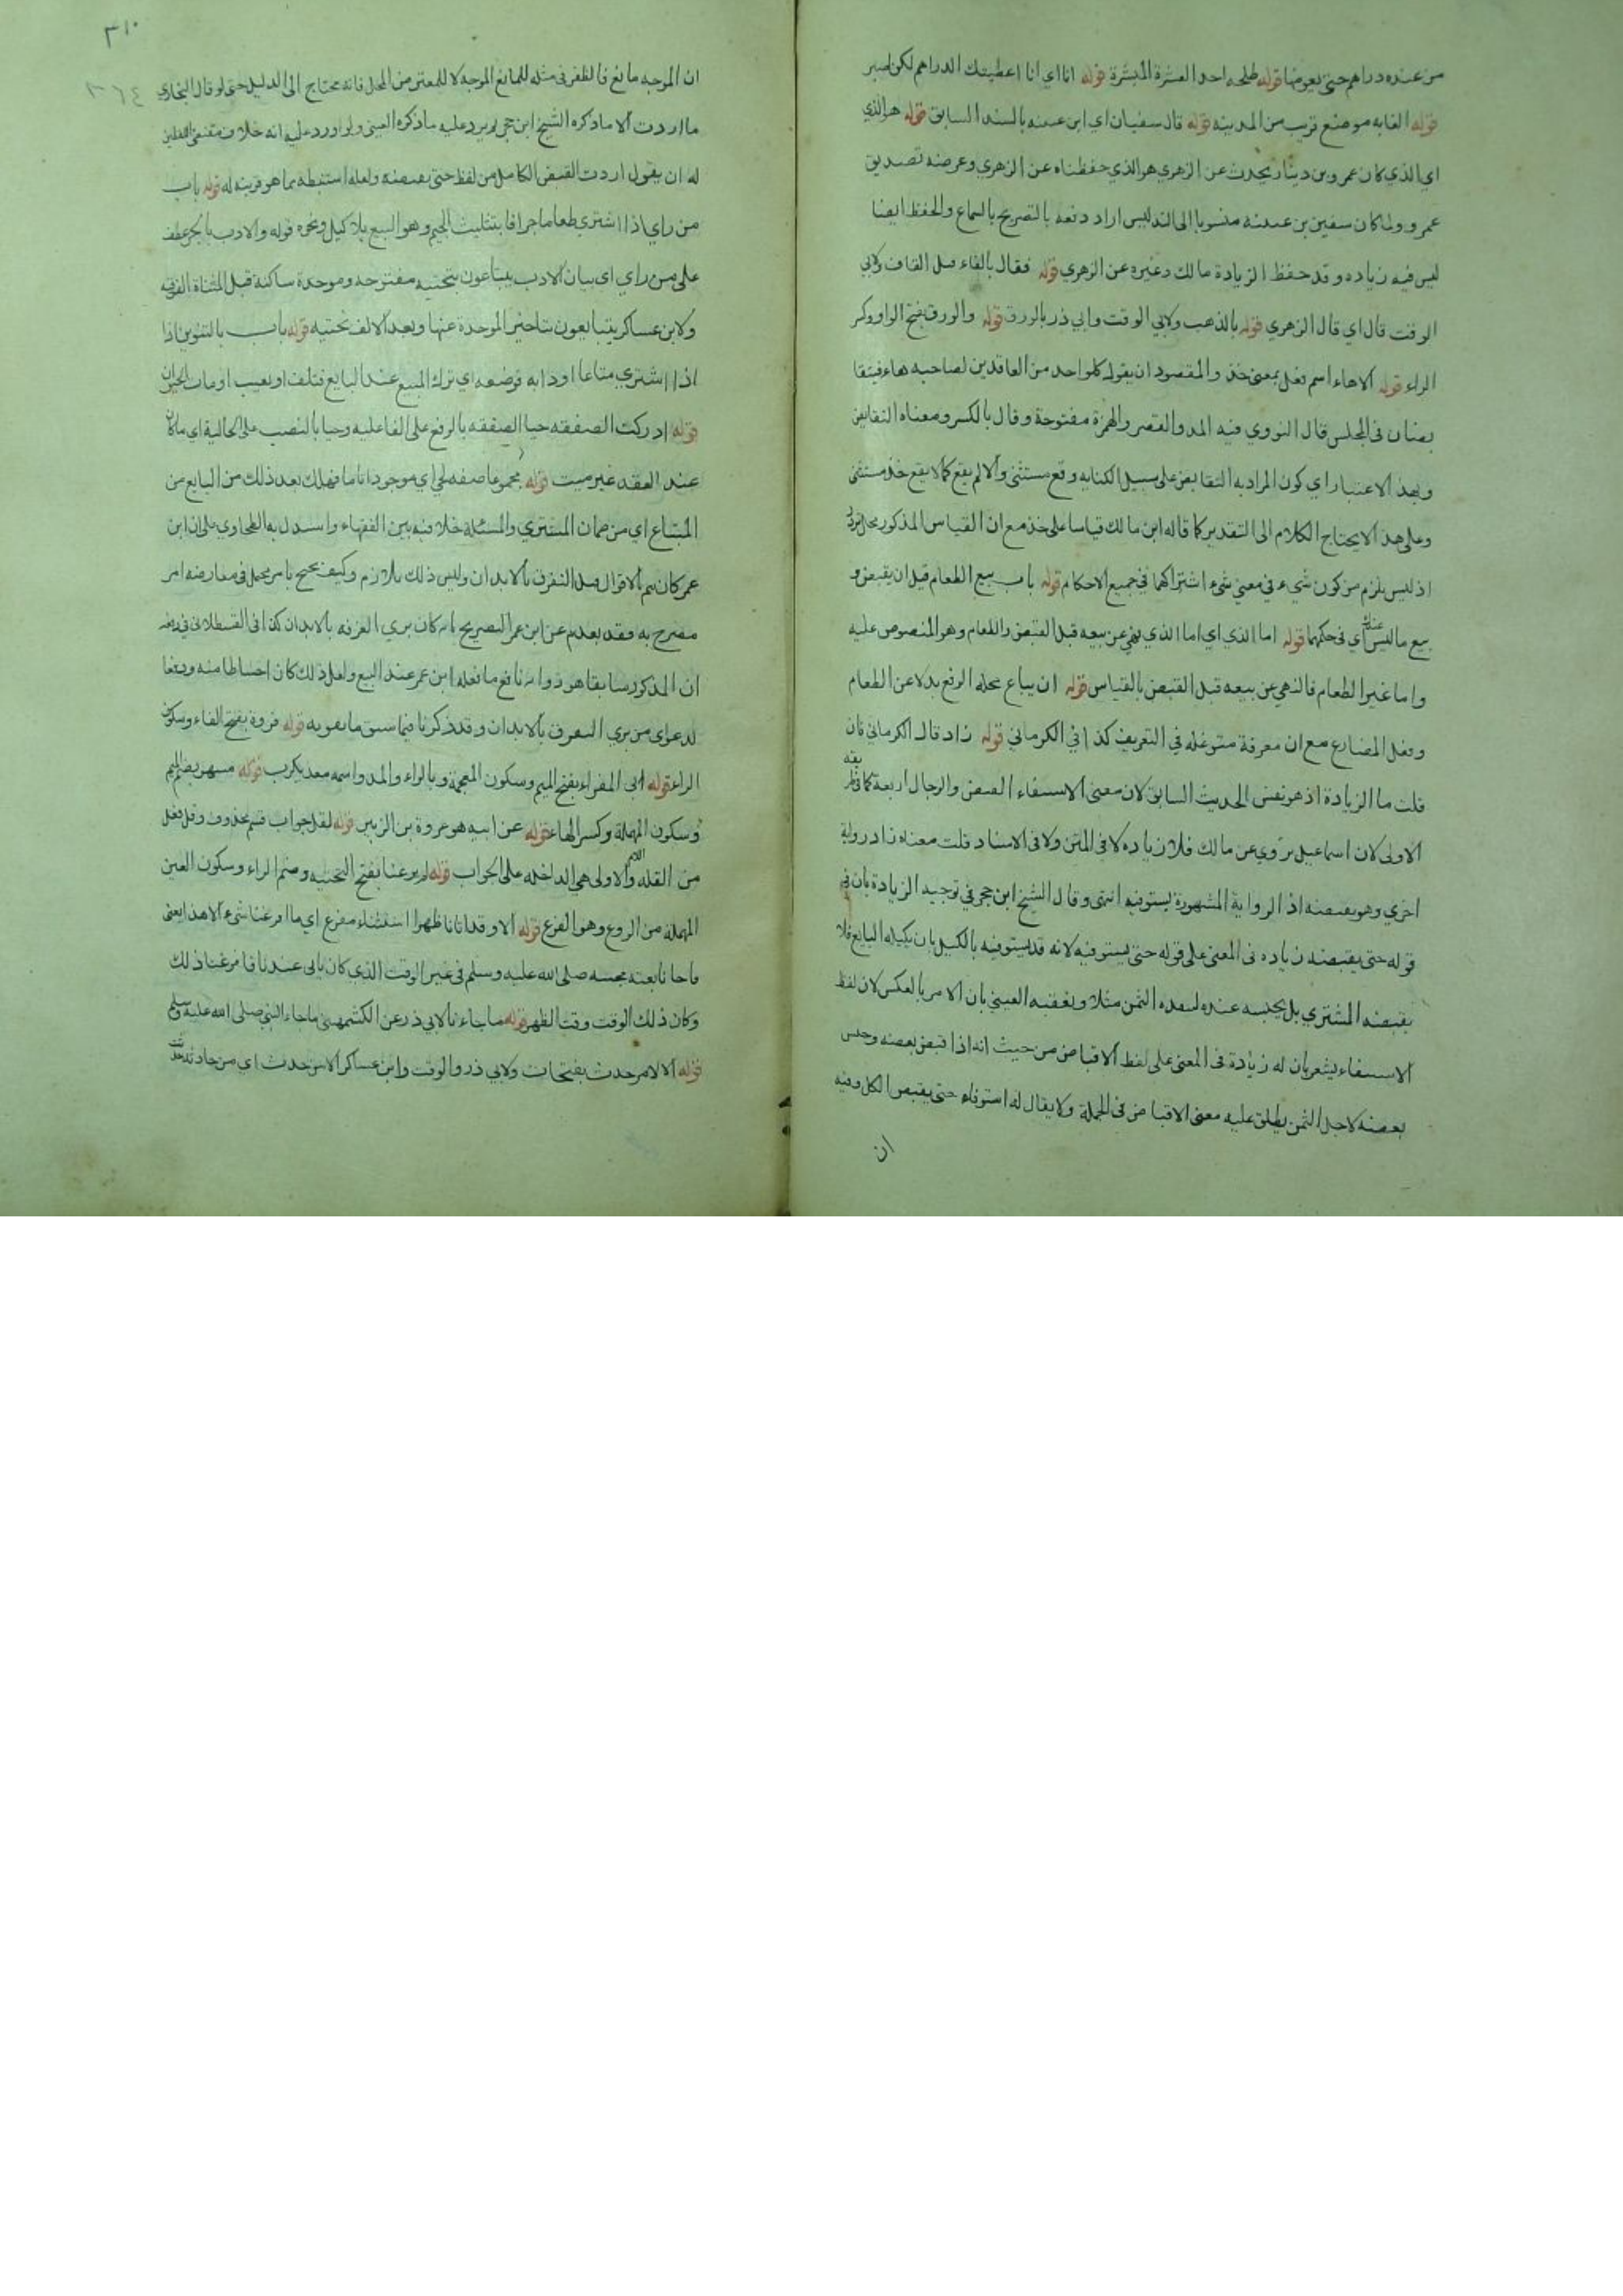 من عنده دراهم حتى يعوضها قوله طلحه احد العشرة المبشرة قوله انا اي انا اعطيتك الدراهم لكن اصبر
قوله الغابه موضع قريب من المدينه قوله قال سفيان اي ابن عيينه بالسند السابق قوله هو الذي
اي الذي كان عمرو بن دينار يحدث عن الزهري هو الذي حفظناه عن الزهري وغرضه تصديق
عمرو ولما كان سفين بن عيينة منسوبا الى التدليس اراد دفعه بالتصريح بالسماع والحفظ ايضا
ليس فيه زياده وقد حفظ الزيادة مالك وغيره عن الزهري قوله فقال بالفاء قبل القاف ولابي
الوقت قال اي قال الزهري قوله بالذهب ولابي الوقت وابي ذر بالورق قوله والورق بفتح الواو وكسر
الراء قوله الا هاء اسم فعل بمعنى خذ والمقصود ان يقول كل واحد من العاقدين لصاحبه هاء فيتقا
بضان في المجلس قال النووي فيه المد والقصر والهمزة مفتوحة وقال بالكسر ومعناه التقابض
وبهذا الاعتبار اي كون المراد به التقابض على سبيل الكنايه وقع مستثنى والا لم يقع كما لا يقع خذ مستثنى
وعلى هذا لا يحتاج الكلام الى التقدير كما قاله ابن مالك قياسا على خذ مع ان القياس المذكور محل تردد
اذ ليس يلزم من كون شيء في معنى شيء اشتراكهما في جميع الاحكام قوله باب بيع الطعام قبل ان يقبض و
بيع ما ليس عندك اي في حكمهما قوله اما الذي اي اما الذي نهي عن بيعه قبل القبض والطعام وهو المنصوص عليه
واما غير الطعام فالنهي عن بيعه قبل القبض بالقياس قوله ان يباع محله الرفع بدلا عن الطعام
وفعل المضارع مع ان معرفة متوغلة في التعريف كذا في الكرماني قوله زاد قال الكرماني فان
قلت ما الزيادة اذ هو نفس الحديث السابق لان معنى الاستيفاء القبض والرجال اربعة كما في الطريقه
الاولى لان اسماعيل يروي عن مالك فلا زياده لا في المتن ولا في الاسناد قلت معناه زاد رواية
اخرى وهو يقبضه اذ الرواية المشهورة يستوفيه انتهى وقال الشيخ ابن حجر في توجيه الزيادة بان في
قوله حتى يقبضه زياده في المعنى على قوله حتى يستوفيه لانه قد يستوفيه بالكيل بان يكيله البايع فلا
يقبضه المشتري بل يحبسه عنده لينقده الثمن مثلا وتعقبه العيني بان الامر بالعكس لان لفظ
الاستيفاء يشعر بان له زيادة في المعنى على لفظ الاقباض من حيث انه اذا قبض بعضه وحبس
بعضه لاجل الثمن يطلق عليه معنى الاقباض في الجملة ولا يقال له استوفاه حتى يقبض الكل وفيه
ان
٣١٠
٣٦٤
ان الموجه مانع فالظفر في مثله للمانع الموجه لا للمعترض المحل فانه محتاج الى الدليل حتى لو قال البخاري
ما اردت الا ما ذكره الشيخ ابن حجر لم يرد عليه ما ذكره العيني ولو اورد عليه انه خلاف مقتضى اللفظين
له ان يقول اردت القبض الكامل من لفظ حتى يقبضه ولعله استنبطه مما هو قرينه له قوله باب
من راي اذا اشترى طعاما جزافا بتثليث الجيم وهو البيع بلا كيل ونحوه قوله والادب بالجر عطف
على من راي اي بيان الادب يبتاعون بتحتيه مفتوحه وموحدة ساكنة قبل المثناة الفوقيه
ولابن عساكر يتبايعون بتاخير الموحدة عنها وبعد الالف تحتيه قوله باب بالتنوين اذا
اذا اشترى متاعا او دابه فوضعه اي ترك المبيع عند البايع فتلف او تعيب او مات الحيوان
قوله ادركت الصفقه حيا الصفقه بالرفع على الفاعليه وحيا بالنصب على الحالية اي ما كان
عند العقد غير ميت قوله مجموعا صفه لحي اي موجودا تاما فهلك بعد ذلك من البايع من
المبتاع اي من ضمان المشتري والمسئلة خلافيه بين الفقهاء واستدل به الطحاوي على ان ابن
عمر كان يتم بالاقوال قبل التفرق بالابدان وليس ذلك بلازم وكيف يحتج بامر محتمل في معارضه امر
مصرح به فقد تقدم عن ابن عمر التصريح بانه كان يرى الفرقه بالابدان كذا في القسطلاني وفيه
ان المذكور سابقا هو ذوا نه نافع ما فعله ابن عمر عند البيع ولعل ذلك كان احتياطا منه ودفعا
لدعوى من يرى التفرق بالابدان وقد ذكرنا فيما سبق ما يقويه قوله فروة بفتح الفاء وسكون
الراء قوله ابي المغراء بفتح الميم وسكون المعجمة وبالراء والمد واسمه معديكرب قوله مسهر بضم الميم
وسكون المهملة وكسر الهاء قوله عن ابيه هو عروة بن الزبير قوله لقل جواب قسم محذوف وقل فعل
من القله واللام الاولى هي الداخله على الجواب قوله لم يرعنا بفتح التحتيه وضم الراء وسكون العين
المهملة من الروع وهو الفزع قوله الا وقد اتانا ظهرا استثناء مفرغ اي ما افزعنا شيء الا هذا يعني
فاجانا بغتة مجيئه صلى الله عليه وسلم في غير الوقت الذي كان ياتي عندنا فافزعنا ذلك
وكان ذلك الوقت وقت الظهر قوله ما جاءنا لابي ذر عن الكشميهني ما جاء النبي صلى الله عليه وسلم
قوله الا لامر حدث بفتحات ولابي ذر والوقت وابن عساكر الا من حدث اي من حادثه حدثت